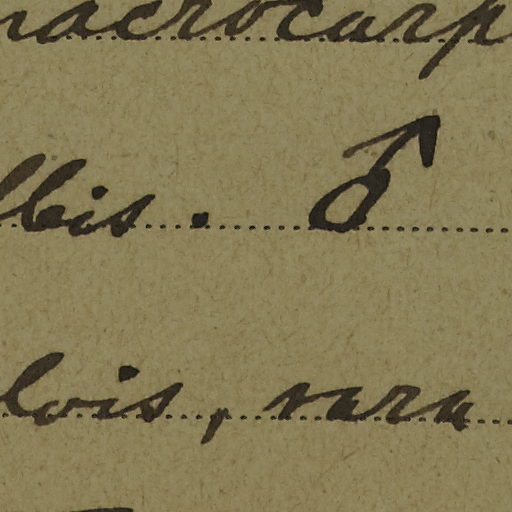 macrocarp
lbis . ♂
lois, rara